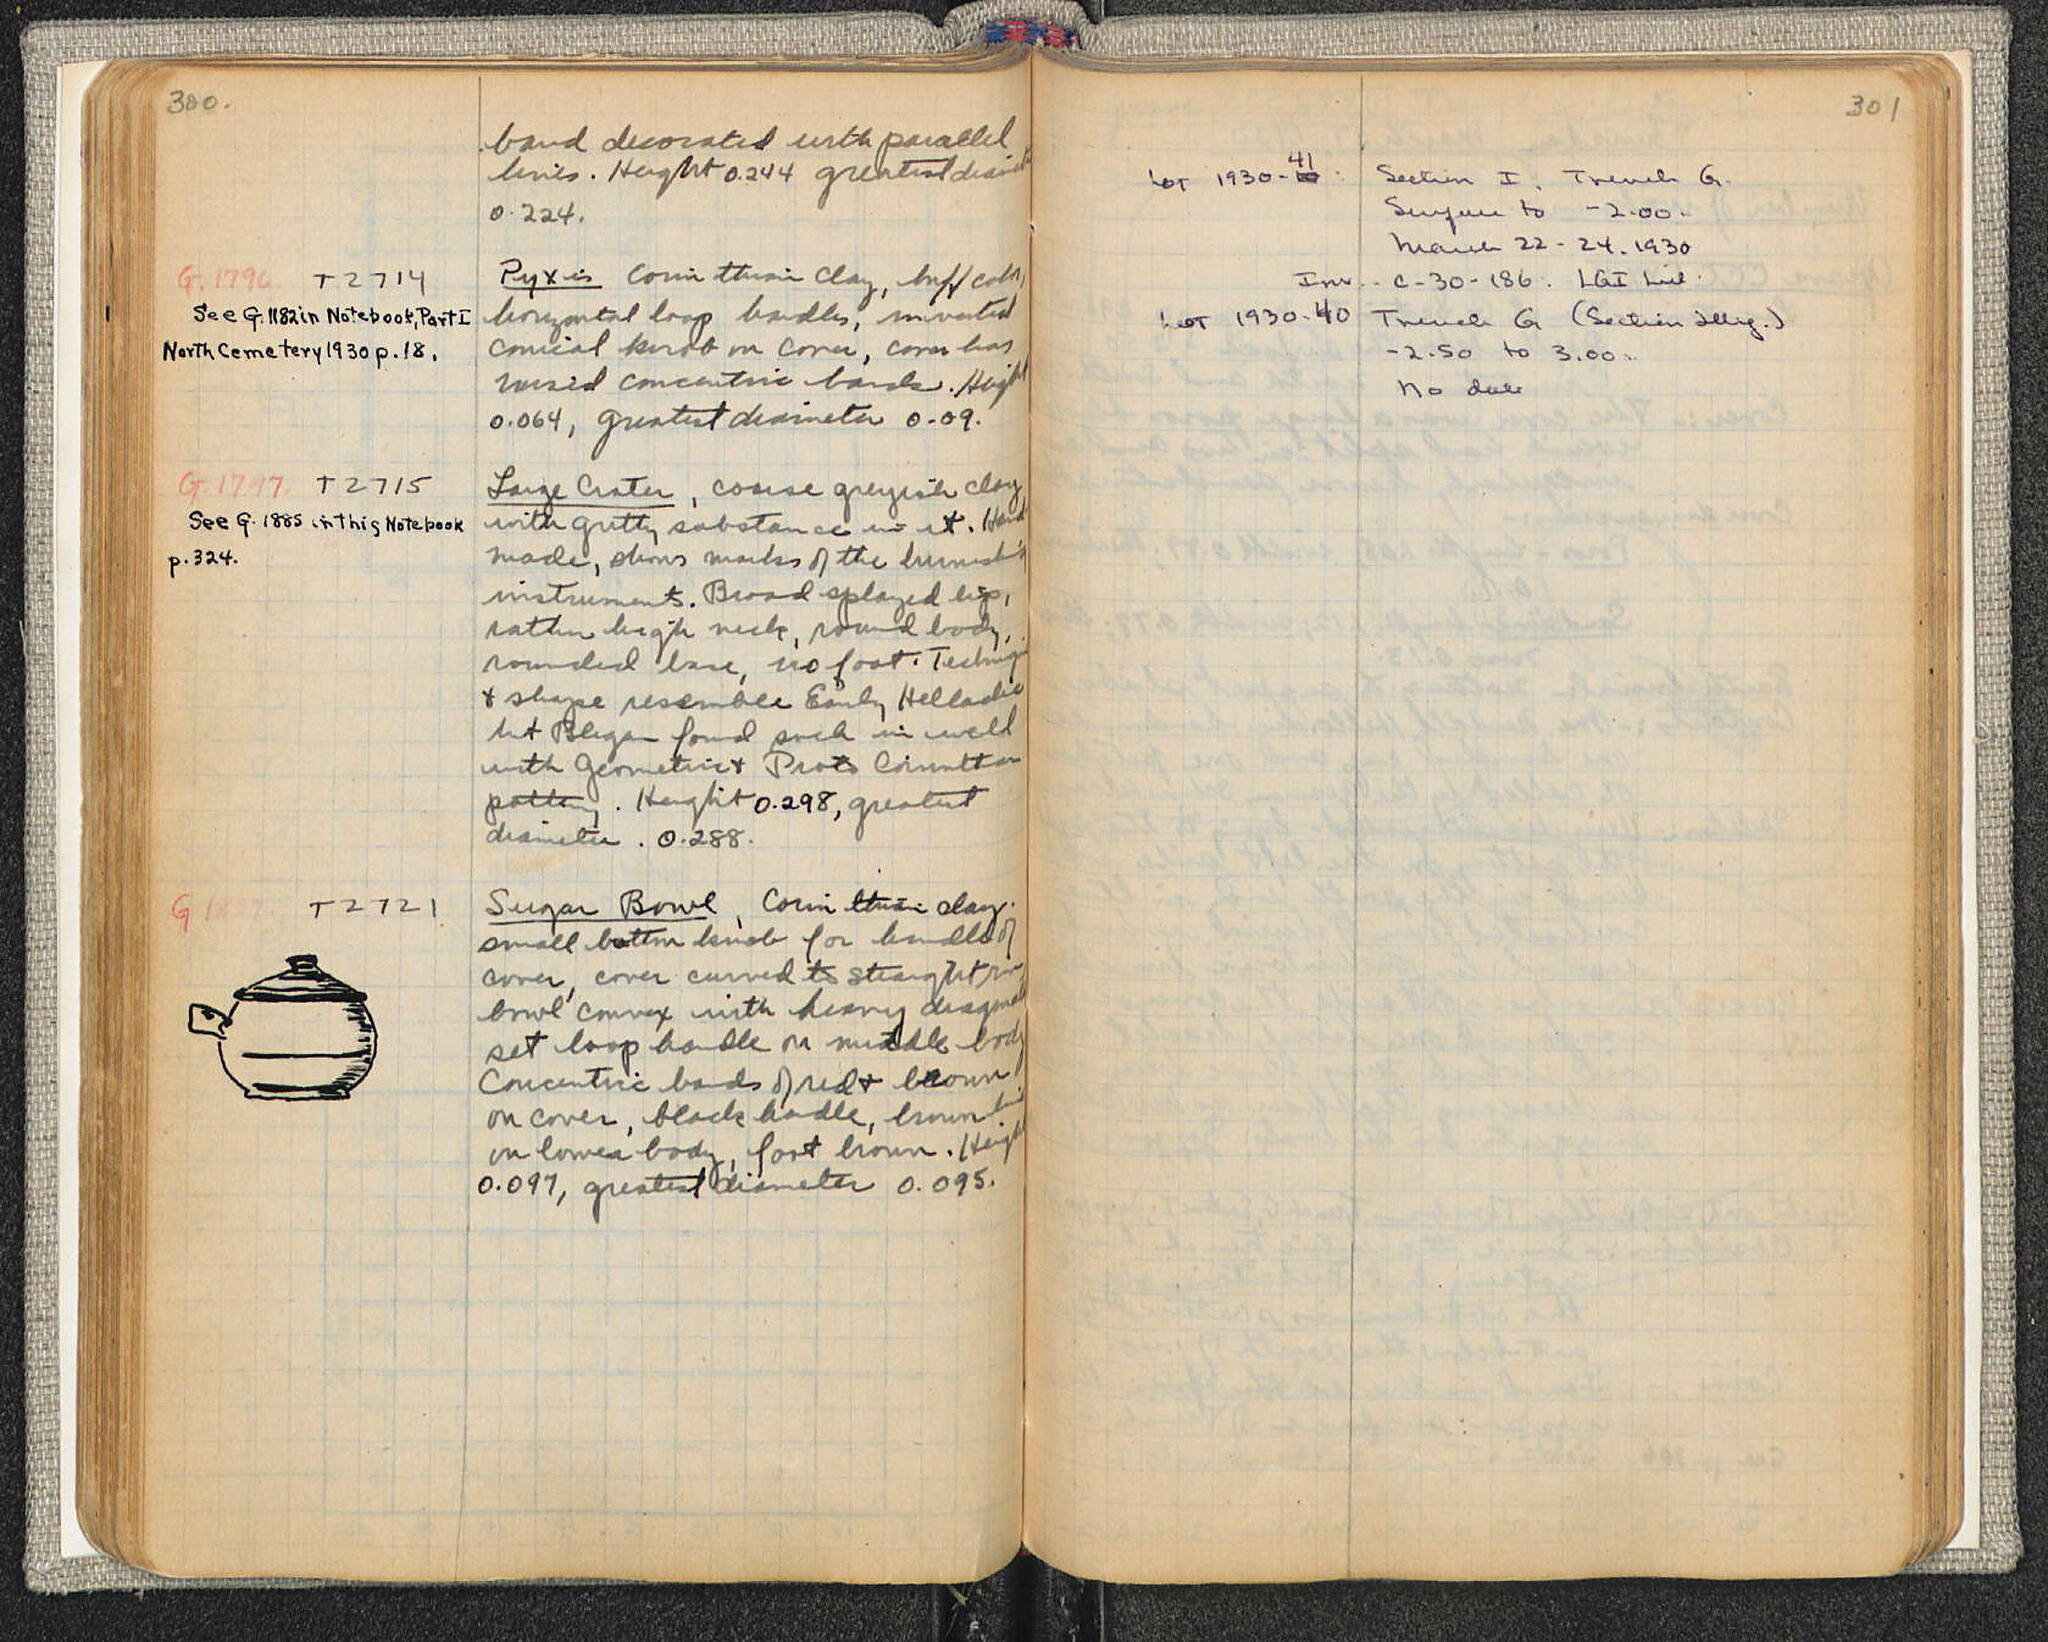 300.
band decorated with parallel
lines. Height 0.244 greatest diamet
0.224.
G. 1796 T 2714 Pyxis Corinthian clay, buff color,
See G. 1182 in Notebook, Part I horizontal loop handles, inverted
North Cemetery 1930 p. 18. conical knob on cover, cover has
raised concentric bands. Height
0.064, greatest diameter 0.09.
G. 1797. T 2715 Large Crater, coarse greyish clay
See G. 1885 in this Notebook with gritty substance in it. Hand
p. 324. made, shows marks of the burnish'g
instruments. Broad splayed lip,
rather high neck, round body,
rounded base, no foot. Techniq
+ shape resemble Early Helladic
but Blegen found such in well
with Geometric + Proto Corinthian
pottery. Height 0.298, greatest
diameter. 0.288.
G T 2721 Sugar Bowl, Corinthian clay.
small button knob for handle of
cover, cover curved to straight rim
bowl convex with heavy diagonal
set loop handle on middle body
Concentric bands of red + brown
on cover, black handle, brown line
on lower body, foot brown. Height
0.097, greatest diameter 0.095.
301
41
Lot 1930- : Section I. Trench G.
Surface to -2.00.
March 22-24, 1930
Inv. C-30-186: LGI Lid.
Lot 1930-40 Trench G (Section Illig.)
-2.50 to 3.00.
No date